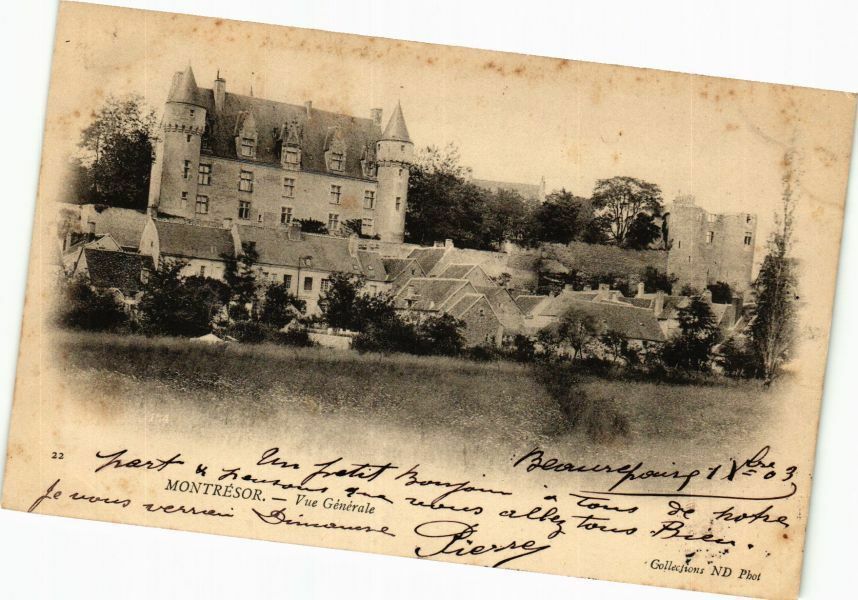 22
MONTRÉSOR. — Vue Générale
Beaurepaire 1 Xbre 03
Un petit Bonjour à tous de notre
part & pensons que vous allez tous Bien.
Je vous verrai Dimanche
Pierre
Collections ND Phot